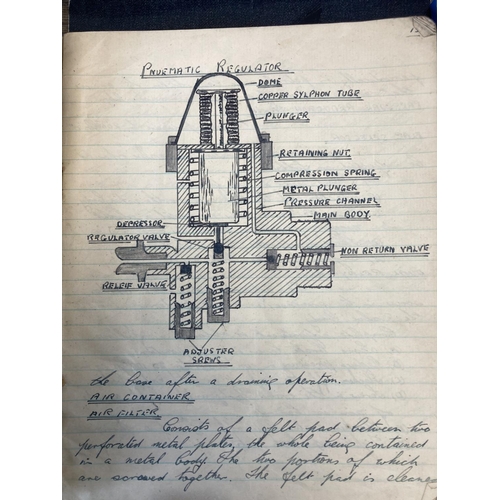 12
PNUEMATIC REGULATOR
DOME
COPPER SYLPHON TUBE
PLUNGER
RETAINING NUT
COMPRESSION SPRING
METAL PLUNGER
PRESSURE CHANNEL
MAIN BODY
DEPRESSOR
REGULATOR VALVE
NON RETURN VALVE
RELEIF VALVE
ADJUSTER
SREWS
the base after a draining operation.
AIR CONTAINER
AIR FILTER
Consists of a felt pad between two
perforated metal plates, the whole being contained
in a metal body. The two portions of which
are screwed together. The felt pad is cleaned